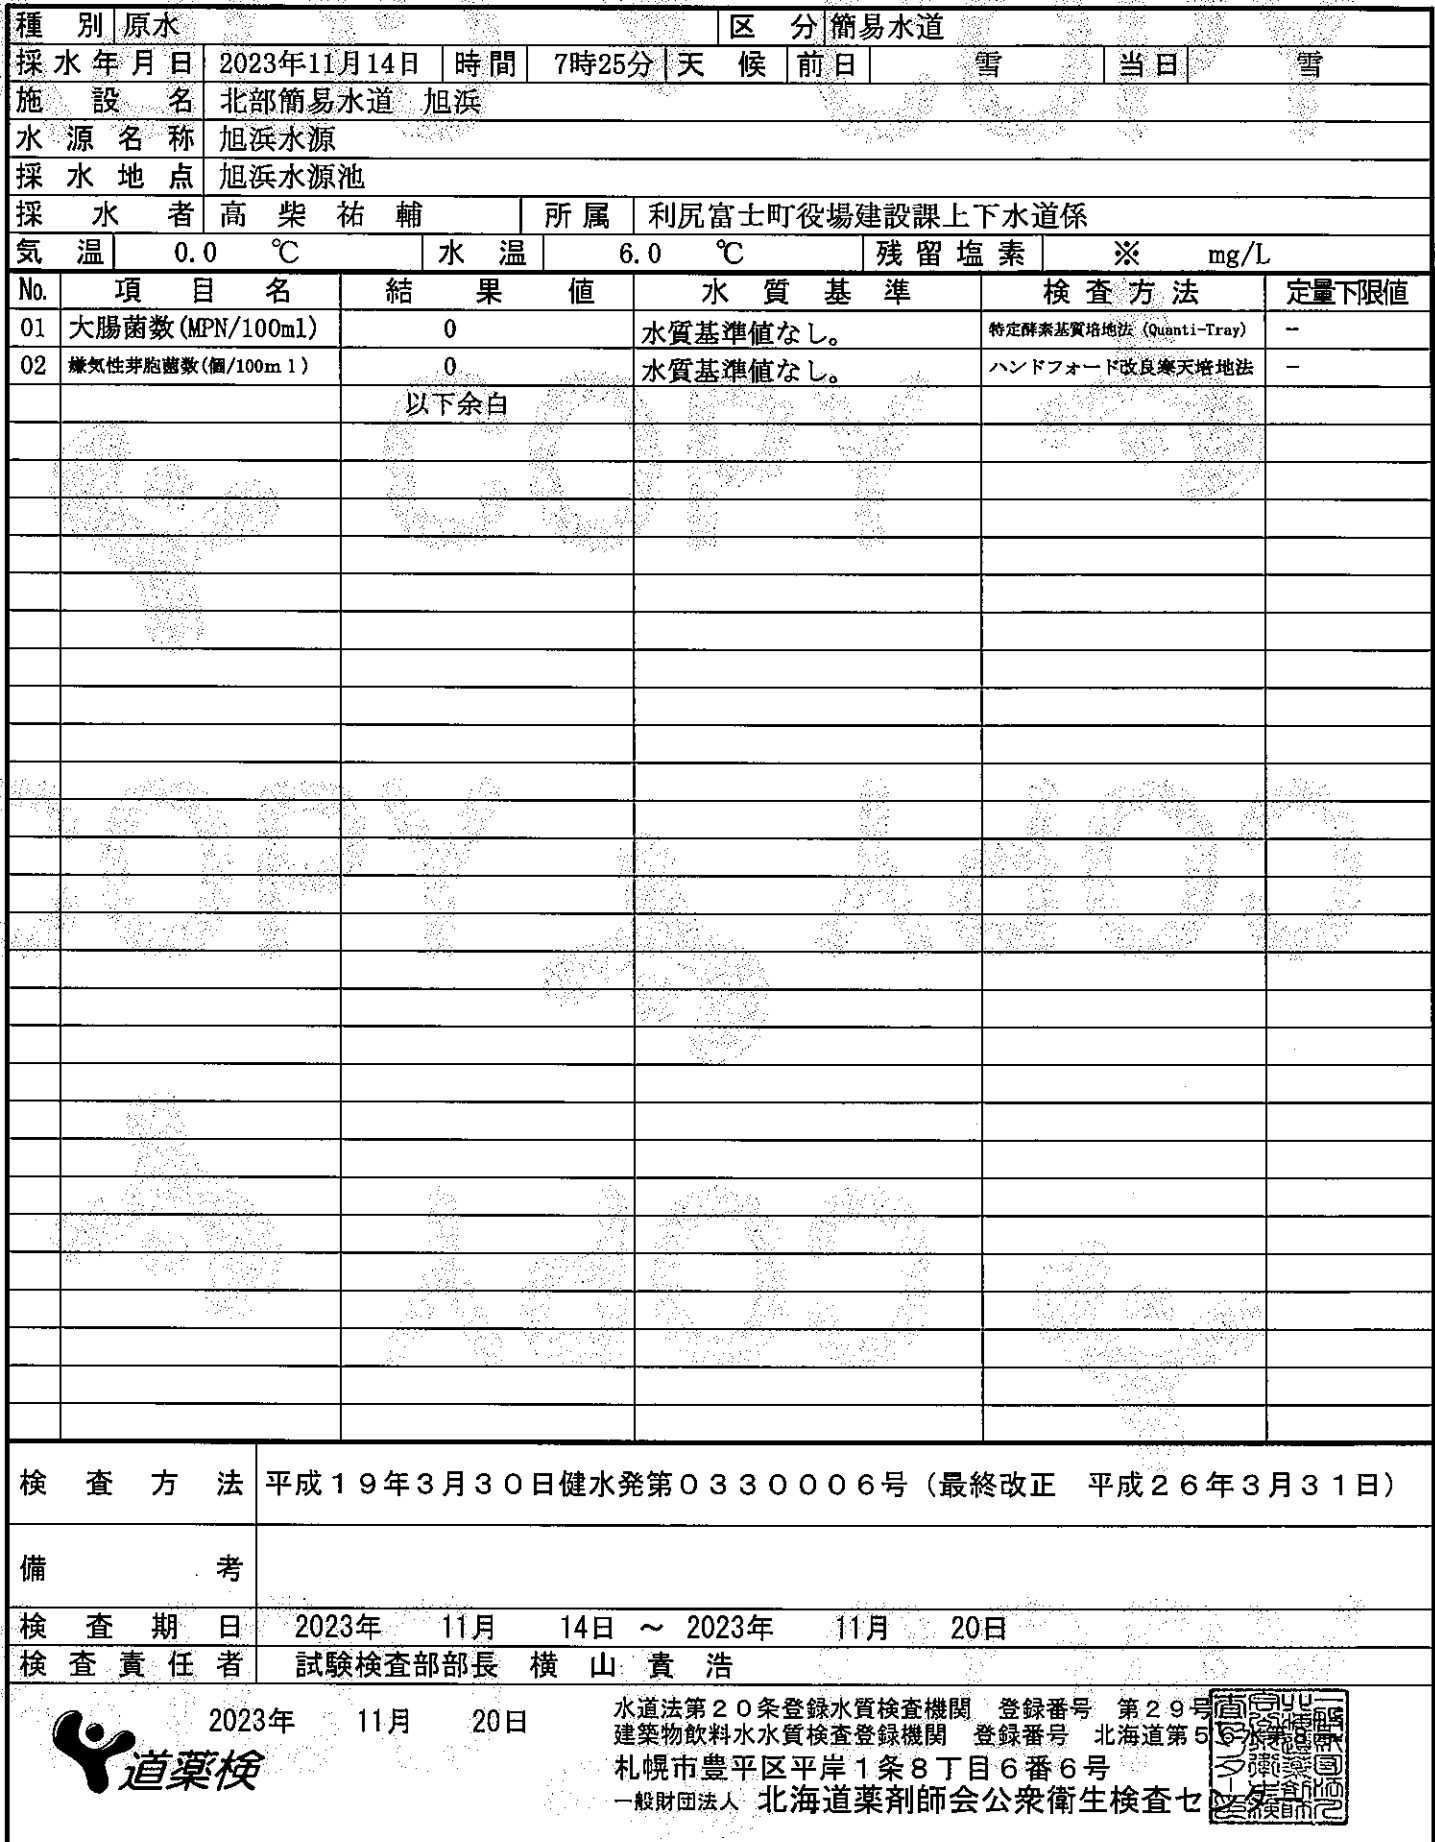 種別 原水 区分 簡易水道
採水年月日 2023年11月14日 時間 7時25分 天候 前日 雪 当日 雪
施設名 北部簡易水道 旭浜
水源名称 旭浜水源
採水地点 旭浜水源池
採水者 高柴祐輔 所属 利尻富士町役場建設課上下水道係
気温 0.0 ℃ 水温 6.0 ℃ 残留塩素 ※ mg/L
No. 項目名 結果値 水質基準 検査方法 定量下限値
01 大腸菌数(MPN/100ml) 0 水質基準値なし。 特定酵素基質培地法（Quanti-Tray） −
02 嫌気性芽胞菌数(個/100ml) 0 水質基準値なし。 ハンドフォード改良寒天培地法 −
以下余白
検査方法 平成１９年３月３０日健水発第０３３０００６号（最終改正 平成２６年３月３１日）
備考
検査期日 2023年 11月 14日 ～ 2023年 11月 20日
検査責任者 試験検査部部長 横山貴浩
2023年 11月 20日
道薬検
水道法第２０条登録水質検査機関 登録番号 第２９号
建築物飲料水水質検査登録機関 登録番号 北海道第５６水第８号
札幌市豊平区平岸１条８丁目６番６号
一般財団法人 北海道薬剤師会公衆衛生検査センター
COPY
COPY
COPY
COPY